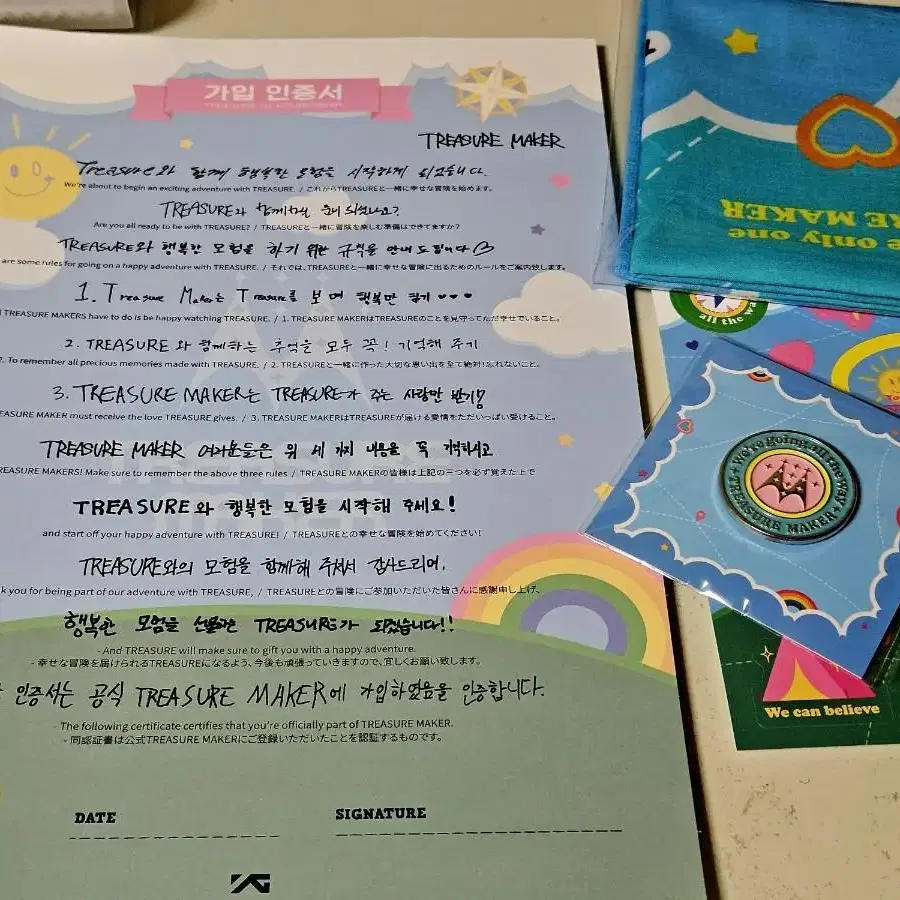 가입 인증서
TREASURE MAKER
Treasure와 함께 행복한 모험을 시작하게 되었습니다.
We're about to begin an exciting adventure with TREASURE. / これからTREASUREと一緒に幸せな冒険を始めます。
TREASURE와 함께할 준비 되셨나요?
Are you all ready to be with TREASURE? / TREASUREと一緒に冒険を楽しむ準備はできてますか?
TREASURE와 행복한 모험을 하기 위한 규칙을 안내드립니다♡
are some rules for going on a happy adventure with TREASURE. / それでは、TREASUREと一緒に幸せな冒険に出るためのルールをご案内致します。
1. Treasure Maker는 Treasure를 보며 행복만 하기 ♥♥♥
TREASURE MAKERS have to do is be happy watching TREASURE. / 1. TREASURE MAKERはTREASUREのことを見守ってただ幸せでいること。
2. TREASURE와 함께하는 추억을 모두 꼭! 기억해 주기
2. To remember all precious memories made with TREASURE. / 2. TREASUREと一緒に作った大切な思い出を全て絶対!忘れないこと。
3. TREASURE MAKER는 TREASURE가 주는 사랑만 받기!!
TREASURE MAKER must receive the love TREASURE gives. / 3. TREASURE MAKERはTREASUREが届ける愛情をただいっぱい受けること。
TREASURE MAKER 여러분들은 위 세 가지 내용을 꼭 기억하고
TREASURE MAKERS! Make sure to remember the above three rules / TREASURE MAKERの皆様は上記の三つを必ず覚えた上で
TREASURE와 행복한 모험을 시작해 주세요!
and start off your happy adventure with TREASURE! / TREASUREとの幸せな冒険を始めてください!
TREASURE와의 모험을 함께해 주셔서 감사드리며,
you for being part of our adventure with TREASURE, / TREASUREとの冒険にご参加いただいた皆さんに感謝申し上げ、
행복한 모험을 선물하는 TREASURE가 되겠습니다!!
- And TREASURE will make sure to gift you with a happy adventure.
- 幸せな冒険を届けられるTREASUREになるよう、今後も頑張っていきますので、宜しくお願い致します。
인증서는 공식 TREASURE MAKER에 가입하였음을 인증합니다.
- The following certificate certifies that you're officially part of TREASURE MAKER.
- 同認証書は公式TREASURE MAKERにご登録いただいたことを認証するものです。
DATE
SIGNATURE
YG
only one
RE MAKER
all the wa
We're going all the way
TREASURE MAKER
We can believe